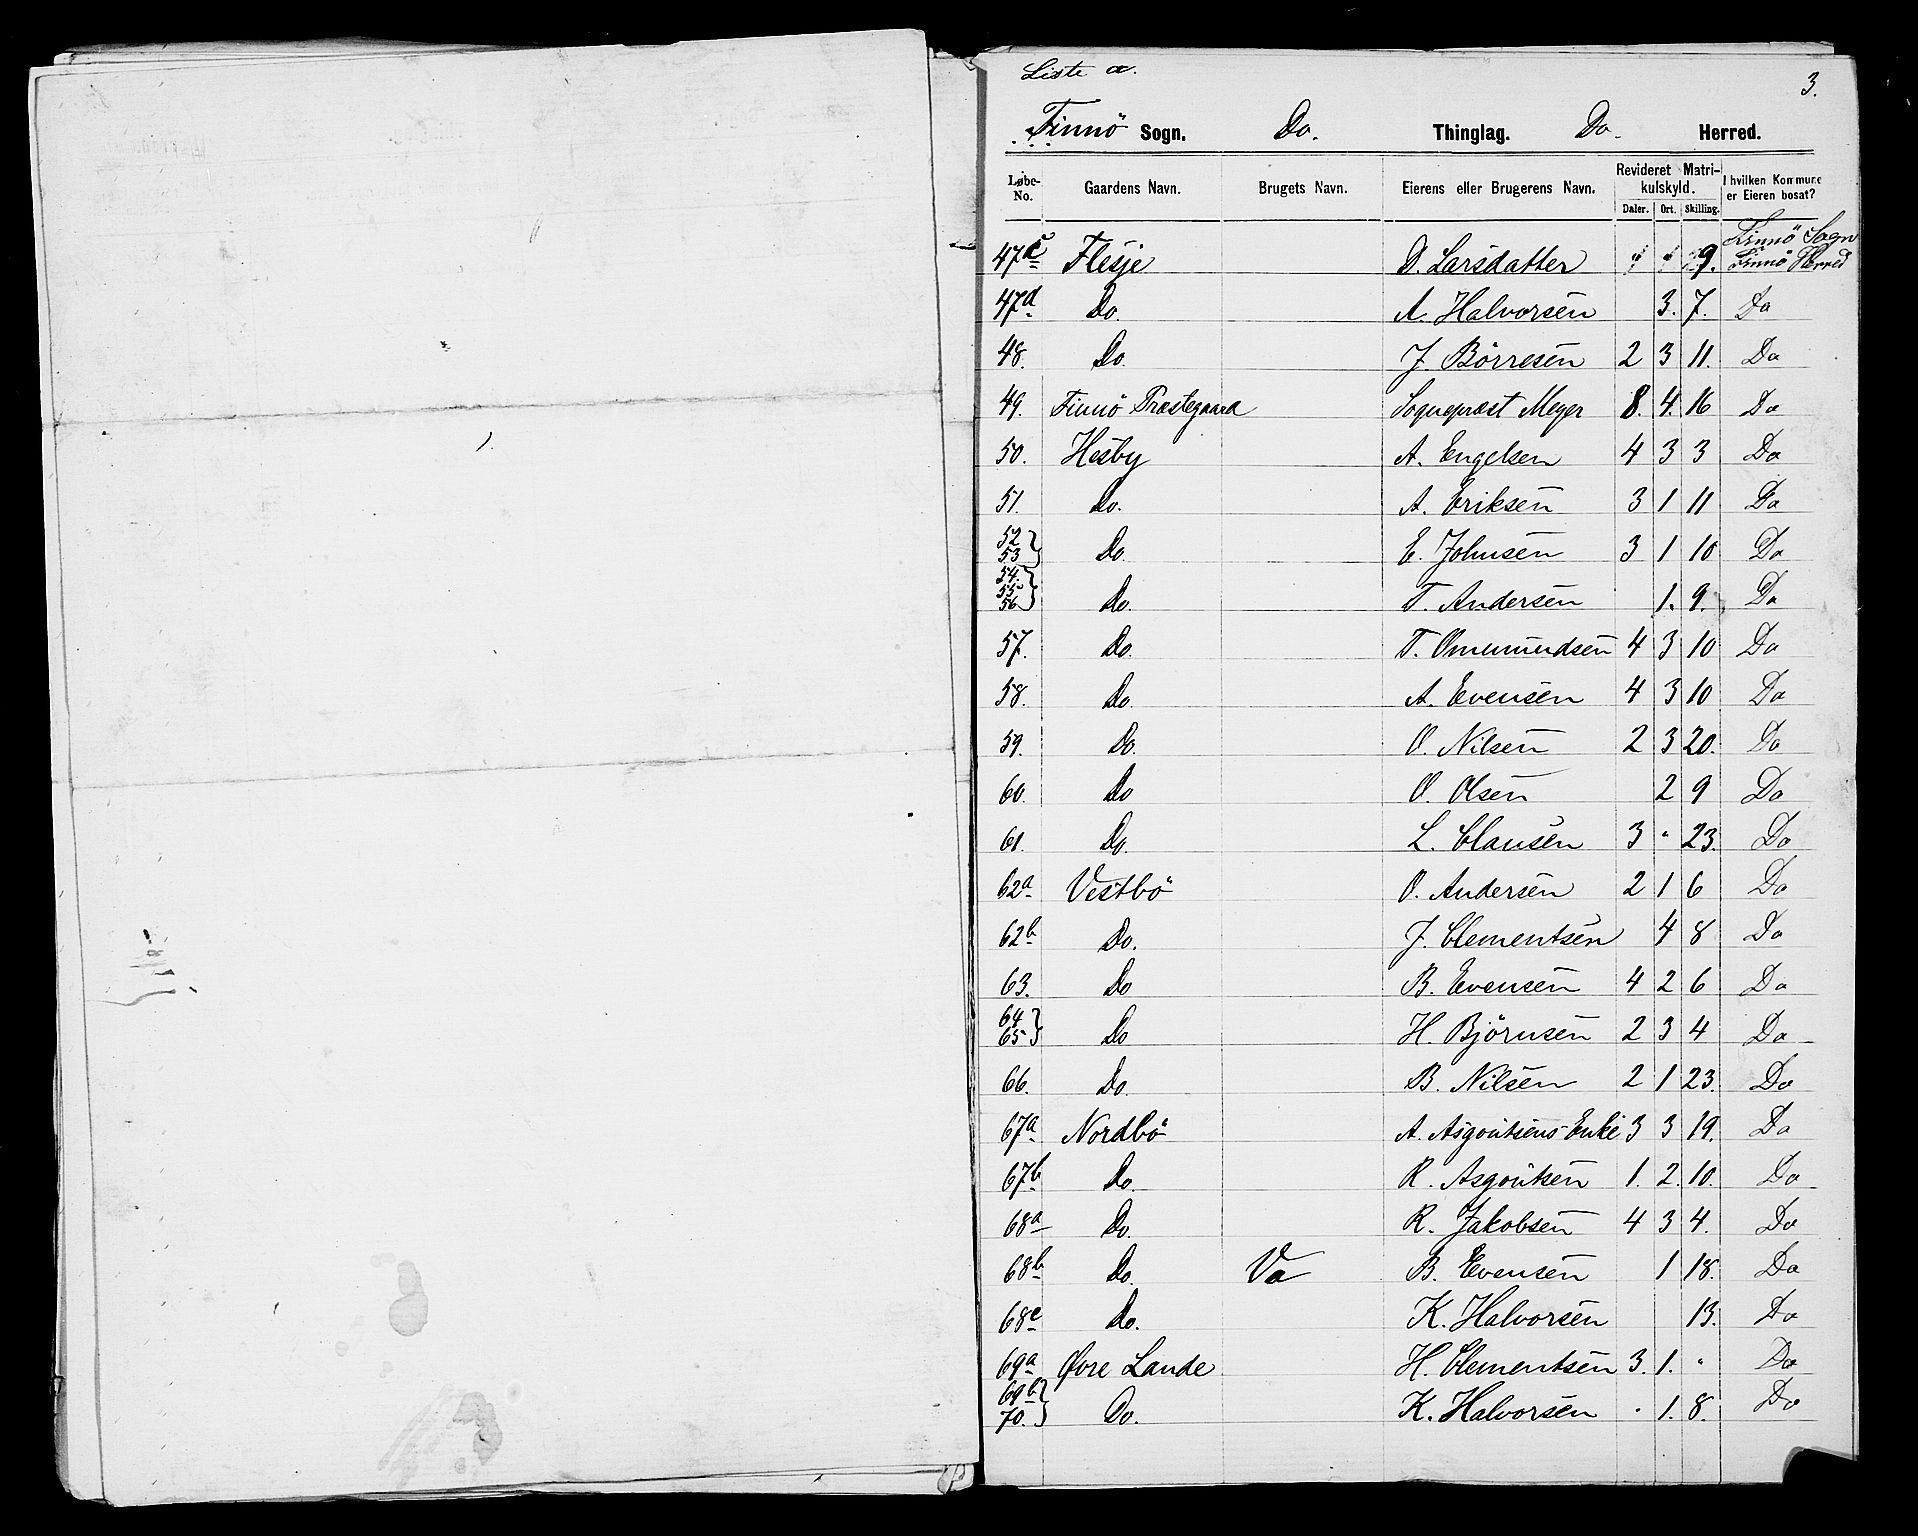 Liste a.
3.
Finnö Sogn. Do. Thinglag. Do. Herred.
Løbe-No. Gaardens Navn. Brugets Navn. Eierens eller Brugerens Navn. Revideret Matrikulskyld. Daler. Ort. Skilling. I hvilken Kommune er Eieren bosat?
47c Flesje D. Larsdatter " " 9. Finnö Sogn Finnö Herred
47d Do. A. Halvorsen 3. 7. Do
48. Do. J. Börresen 2 3 11. Do
49. Finnö Præstegaard Sognepræst Meyer 8. 4. 16 Do
50. Hesby A. Engelsen 4 3 3 Do
51. Do. A. Eriksen 3 1 11 Do
52 53 } Do. E. Johnsen 3 1 10 Do
54. 55 56 } Do. T. Andersen 1. 9. Do
57. Do. T. Ommundsen 4 3 10 Do
58. Do. A. Evensen 4 3 10 Do
59. Do. O. Nilsen 2 3 20. Do
60. Do O. Olsen 2 9 Do
61. Do. L. Clausen 3 " 23. Do
62a Vestbö O. Andersen 2 1 6 Do
62b Do. J. Clementsen 4 8 Do
63. Do B. Evensen 4 2 6 Do
64 65 } Do H. Björnsen 2 3 4 Do
66. Do. B. Nilsen 2 1 23. Do
67a Nordbö A. Asgoutsens Enke 3 3 19. Do
67b Do. R. Asgoutsen 1. 2. 10. Do
68a Do. R. Jakobsen 4 3 4. Do
68b Do. Va B. Evensen 1 18. Do
68c Do. K. Halvorsen 13. Do
69a Øvre Lande H. Clementsen 3. 1. " Do
69b 70. } Do. K. Halvorsen " 1. 8. Do